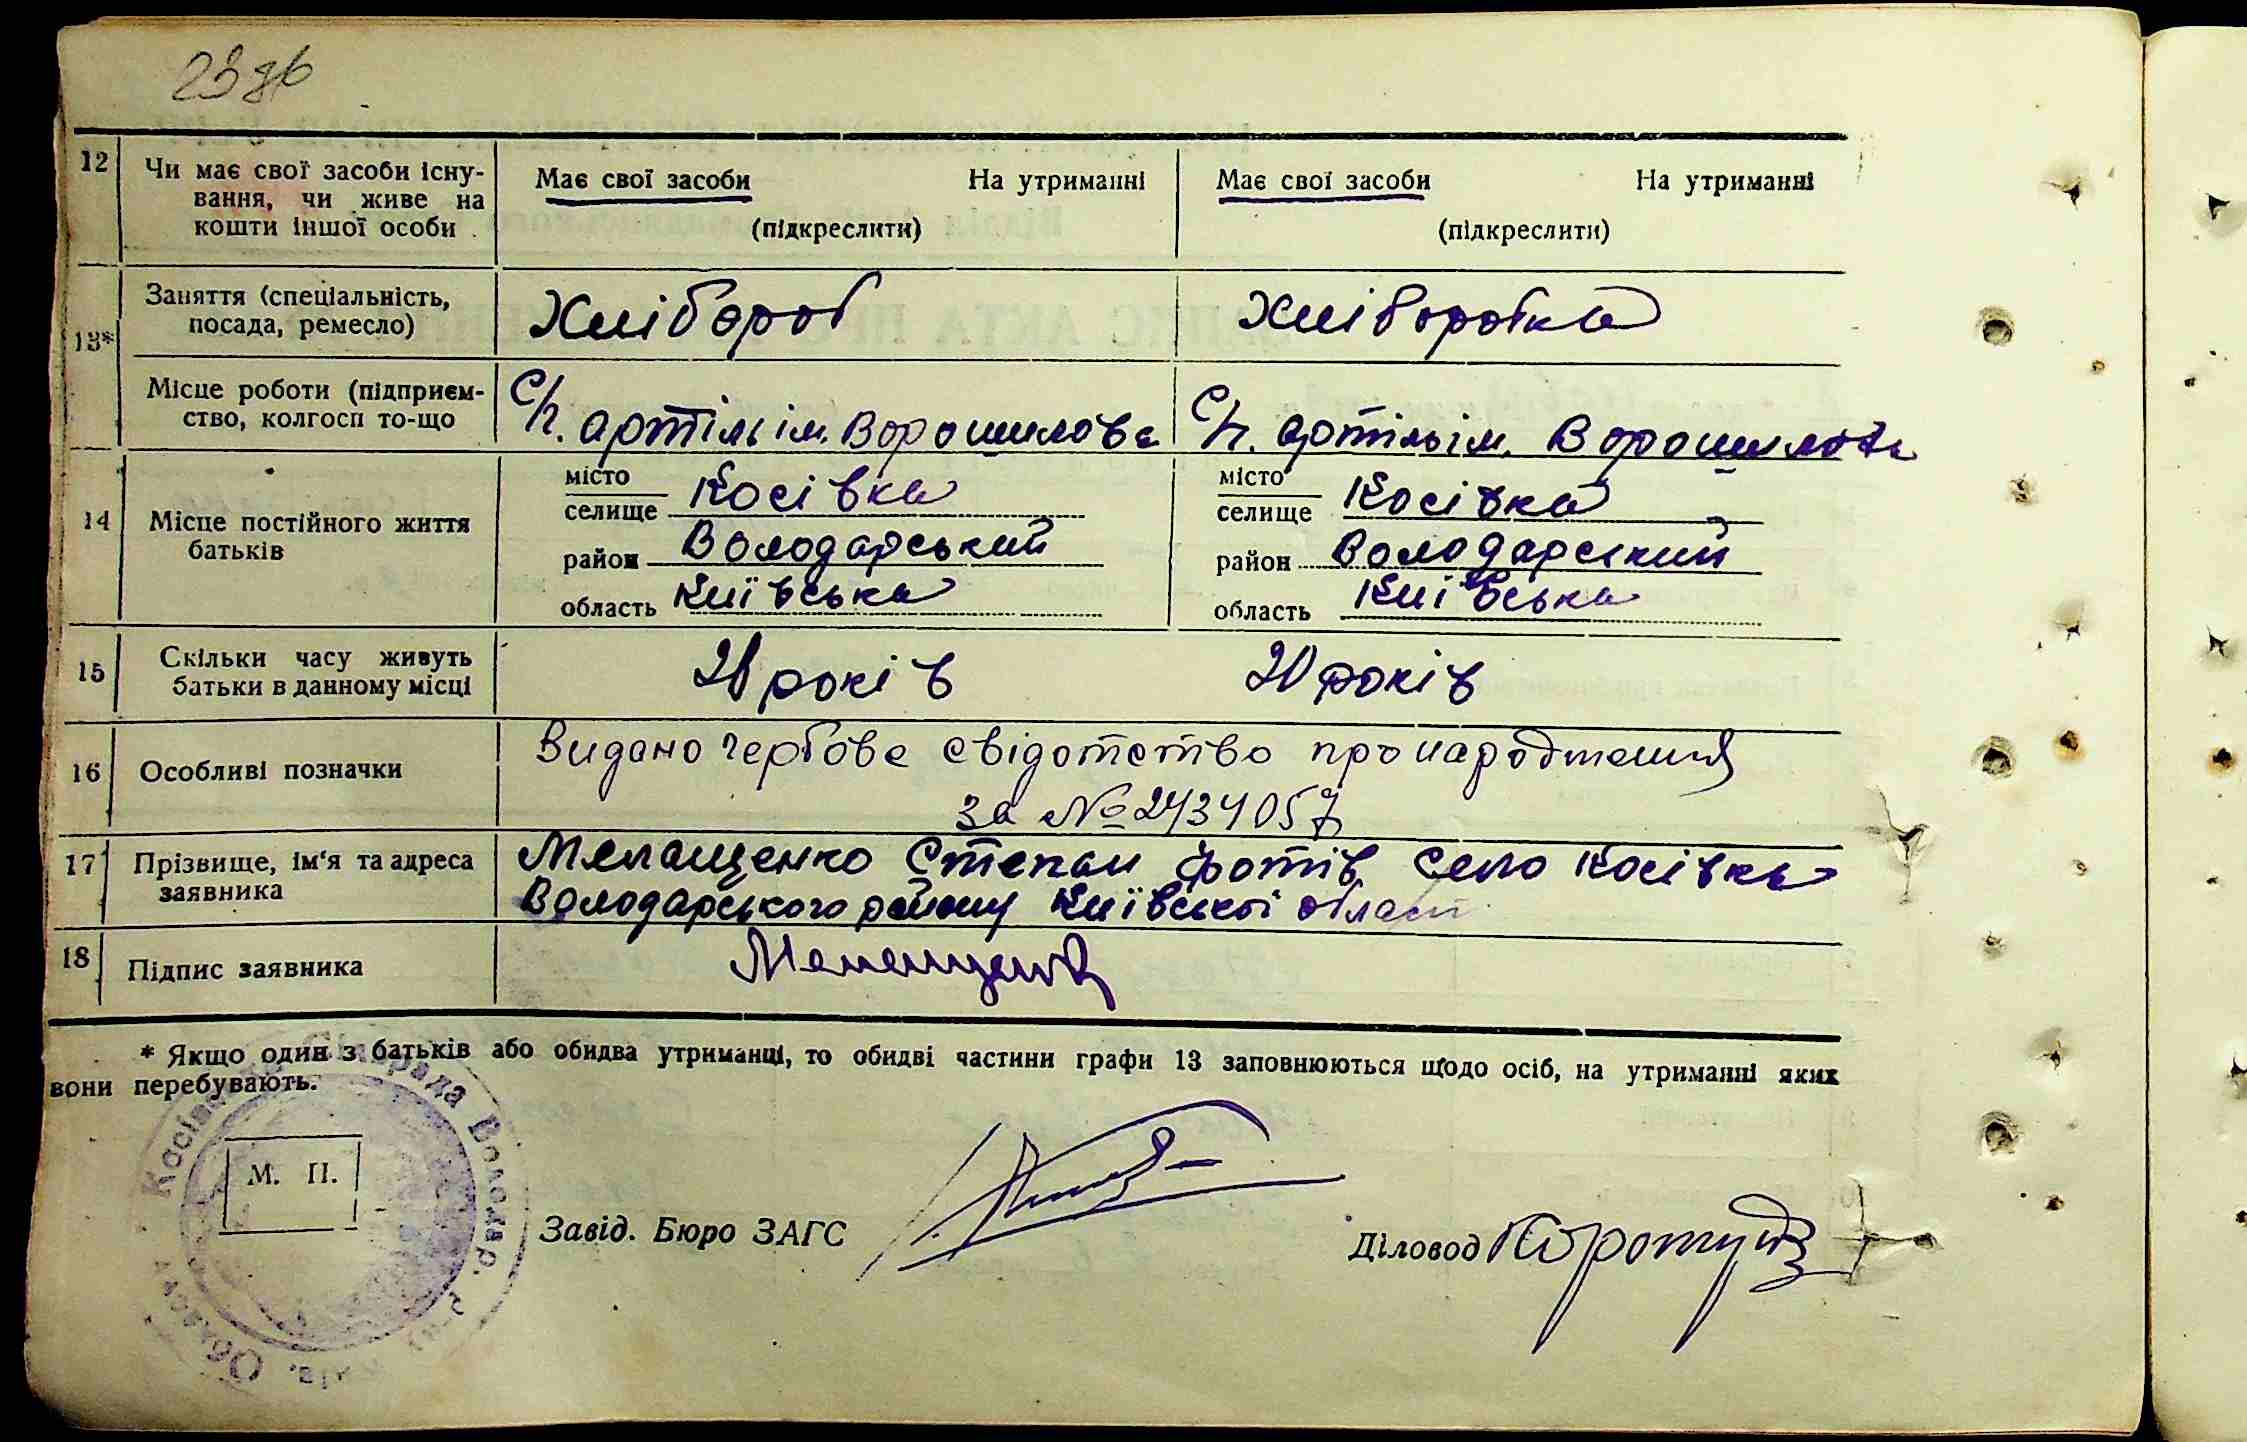 23 зв
12 Чи має свої засоби існу-
вання, чи живе на
кошти іншої особи
Має свої засоби На утриманні
(підкреслити)
Має свої засоби На утриманні
(підкреслити)
13*
Заняття (спеціальність,
посада, ремесло)
Хлібороб
Хліборобка
Місце роботи (підприєм-
ство, колгосп то-що
С/г. артіль ім. Ворошилова
С/г. артіль ім. Ворошилова
14 Місце постійного життя
батьків
місто
селище Косівка
район Володарський
область Київська
місто
селище Косівка
район Володарський
область Київська
15 Скільки часу живуть
батьки в данному місці
20 років
20 років
16 Особливі позначки
Видано гербове свідотство про народження
за № 2434057
17 Прізвище, ім'я та адреса
заявника
Мелащенко Степан Фотів село Косівка
Володарського району Київської област
18 Підпис заявника
* Якщо один з батьків або обидва утриманці, то обидві частини графи 13 заповнюються щодо осіб, на утриманні яких
вони перебувають.
М. П.
Завід. Бюро ЗАГС
Діловод